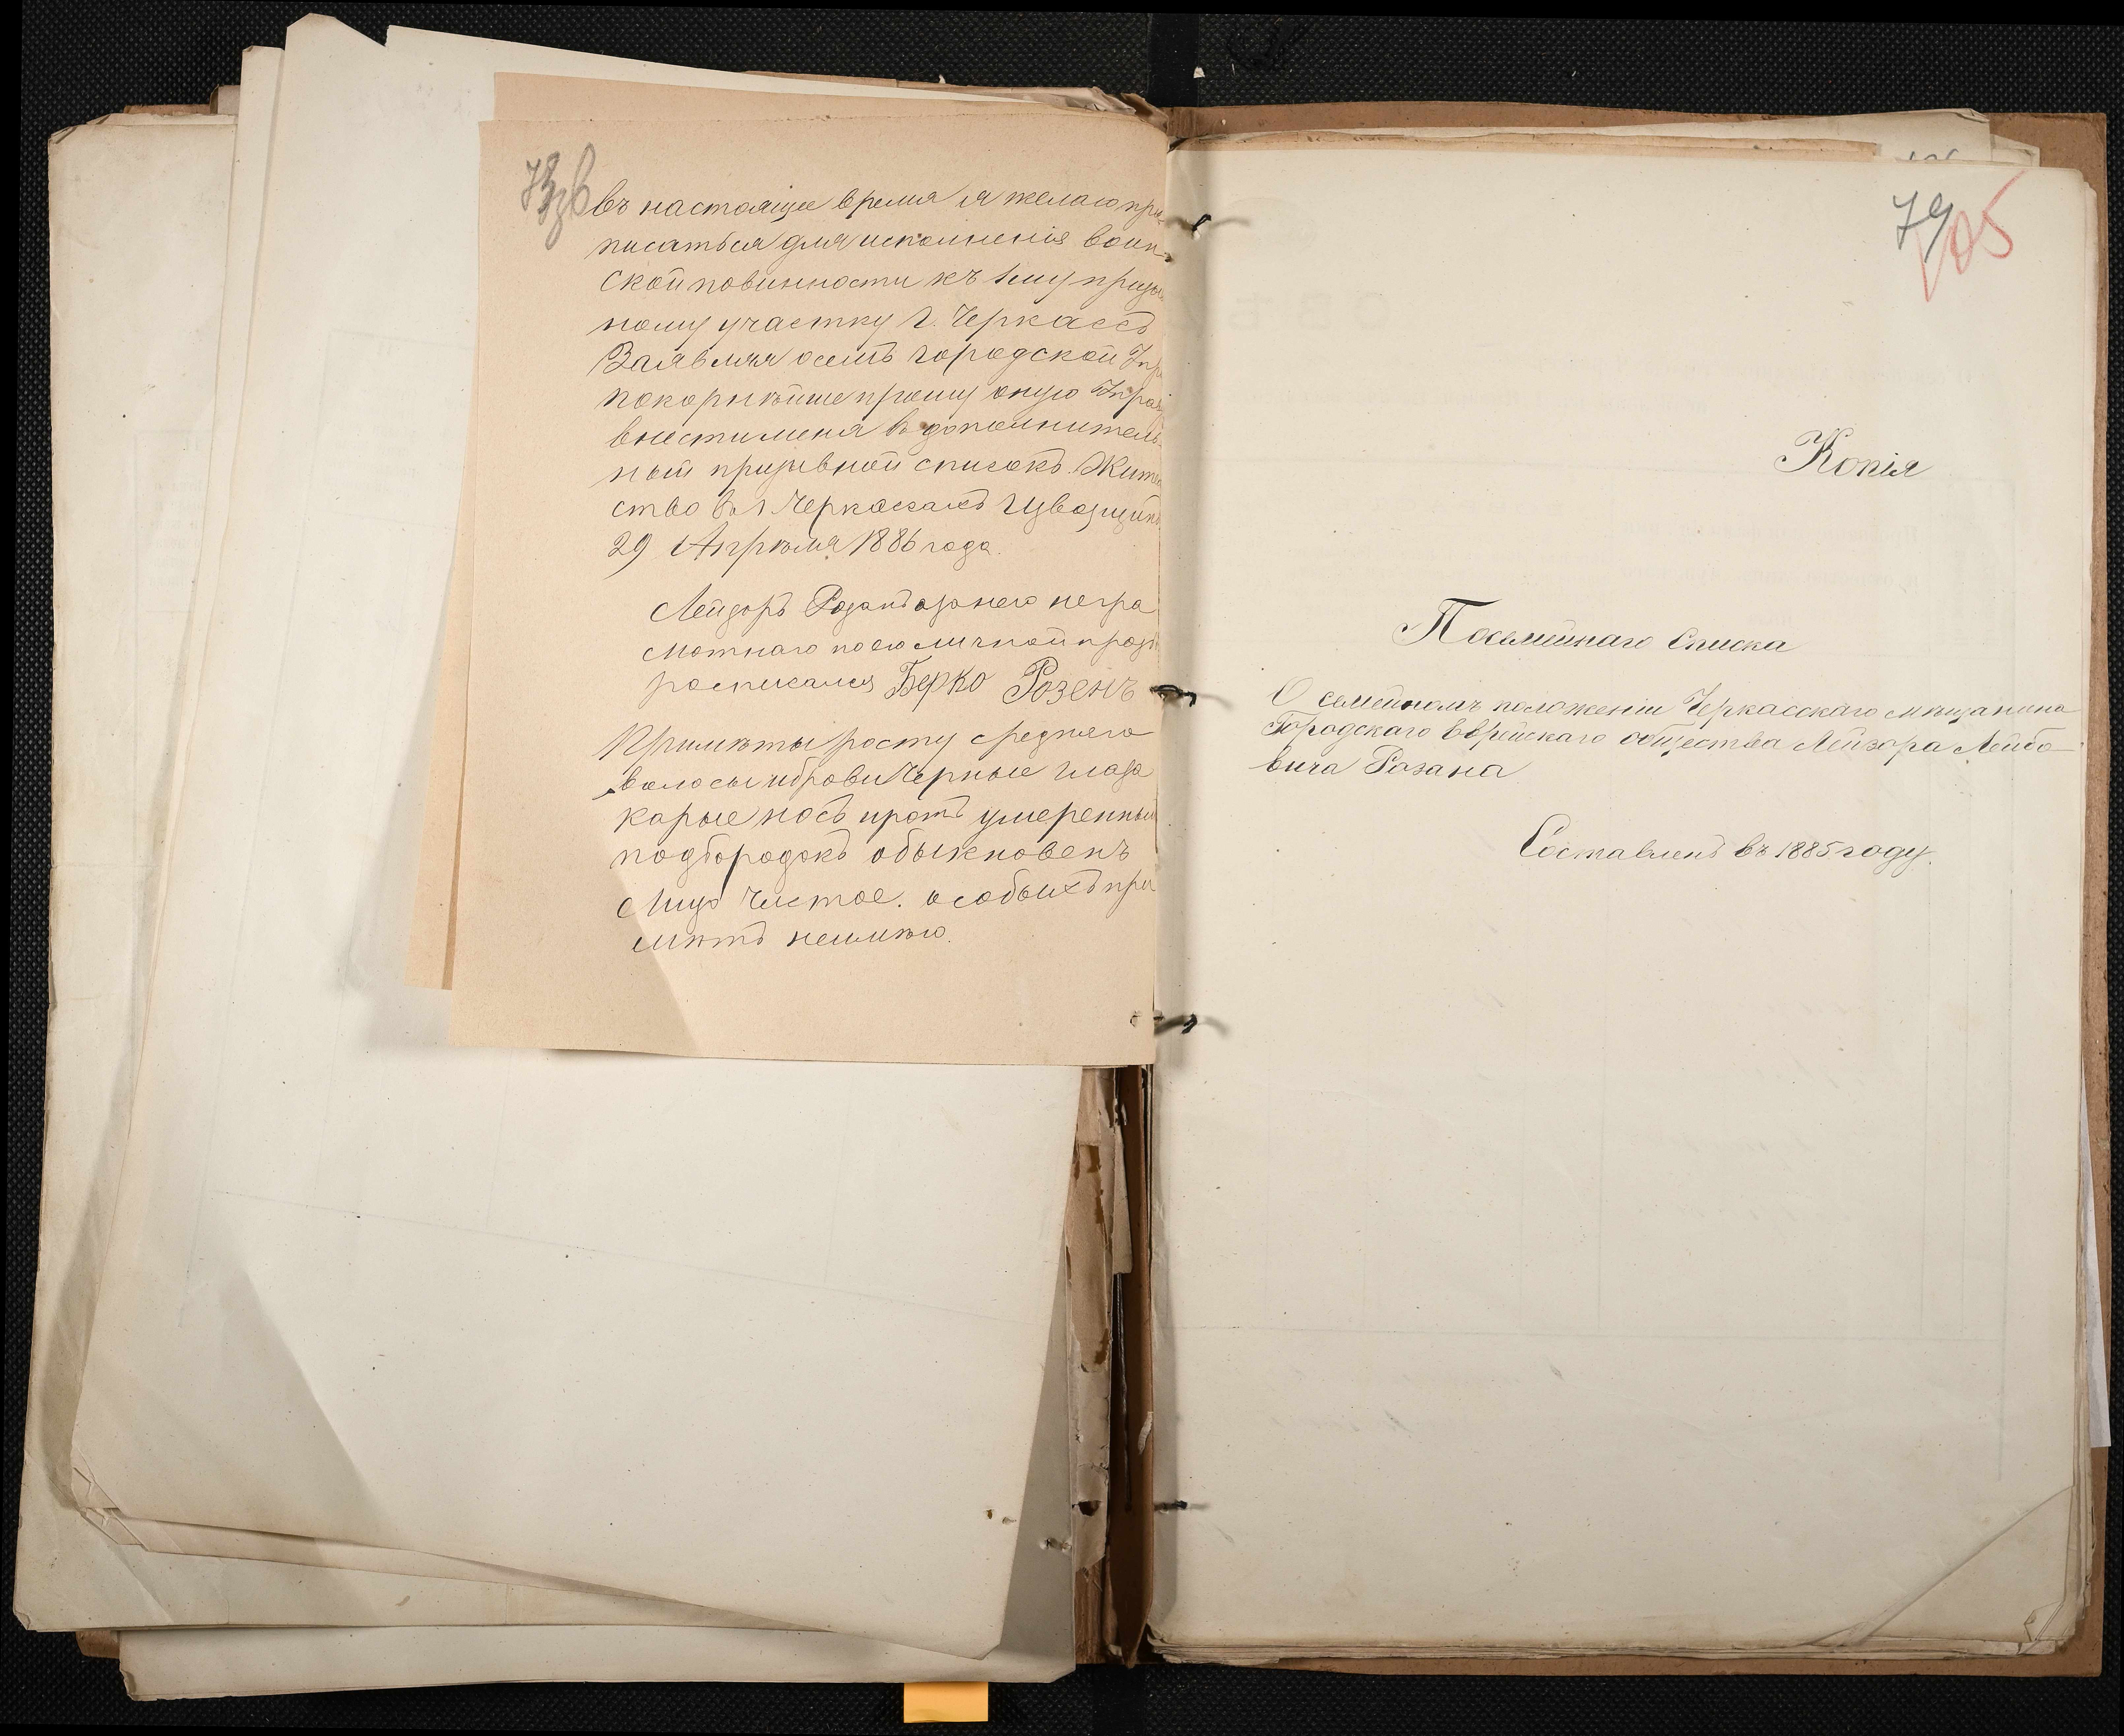 въ настоящее время я желаю при-
писаться для исполненія воин-
ской повинности къ 1му призыв
ному участку г. Черкассъ
Заявляя о семъ городской Упр
покорнѣйше прошу оную Управ
внести меня въ дополнитель-
ный призывной списокъ. Житель
ство въ г. Черкассахъ
29 Апрѣля 1886 года.
Лейзоръ Розанъ а за него негра
мотнаго по его личной прозь
росписался Берко Розенъ
Примѣты росту средняго
волосы и брови черные глаза
карые носъ и ротъ умеренный
подбородокъ обыкновенъ
Лицо чистое. особыхъ при
мѣтъ неимѣю.
79
105
Копія
Посемейнаго Списка
О семейномъ положеніи Черкасскаго мѣщанина
Городскаго Еврейскаго общества Лейзора Лейбо-
вича Розана
Составленъ въ 1885 году.